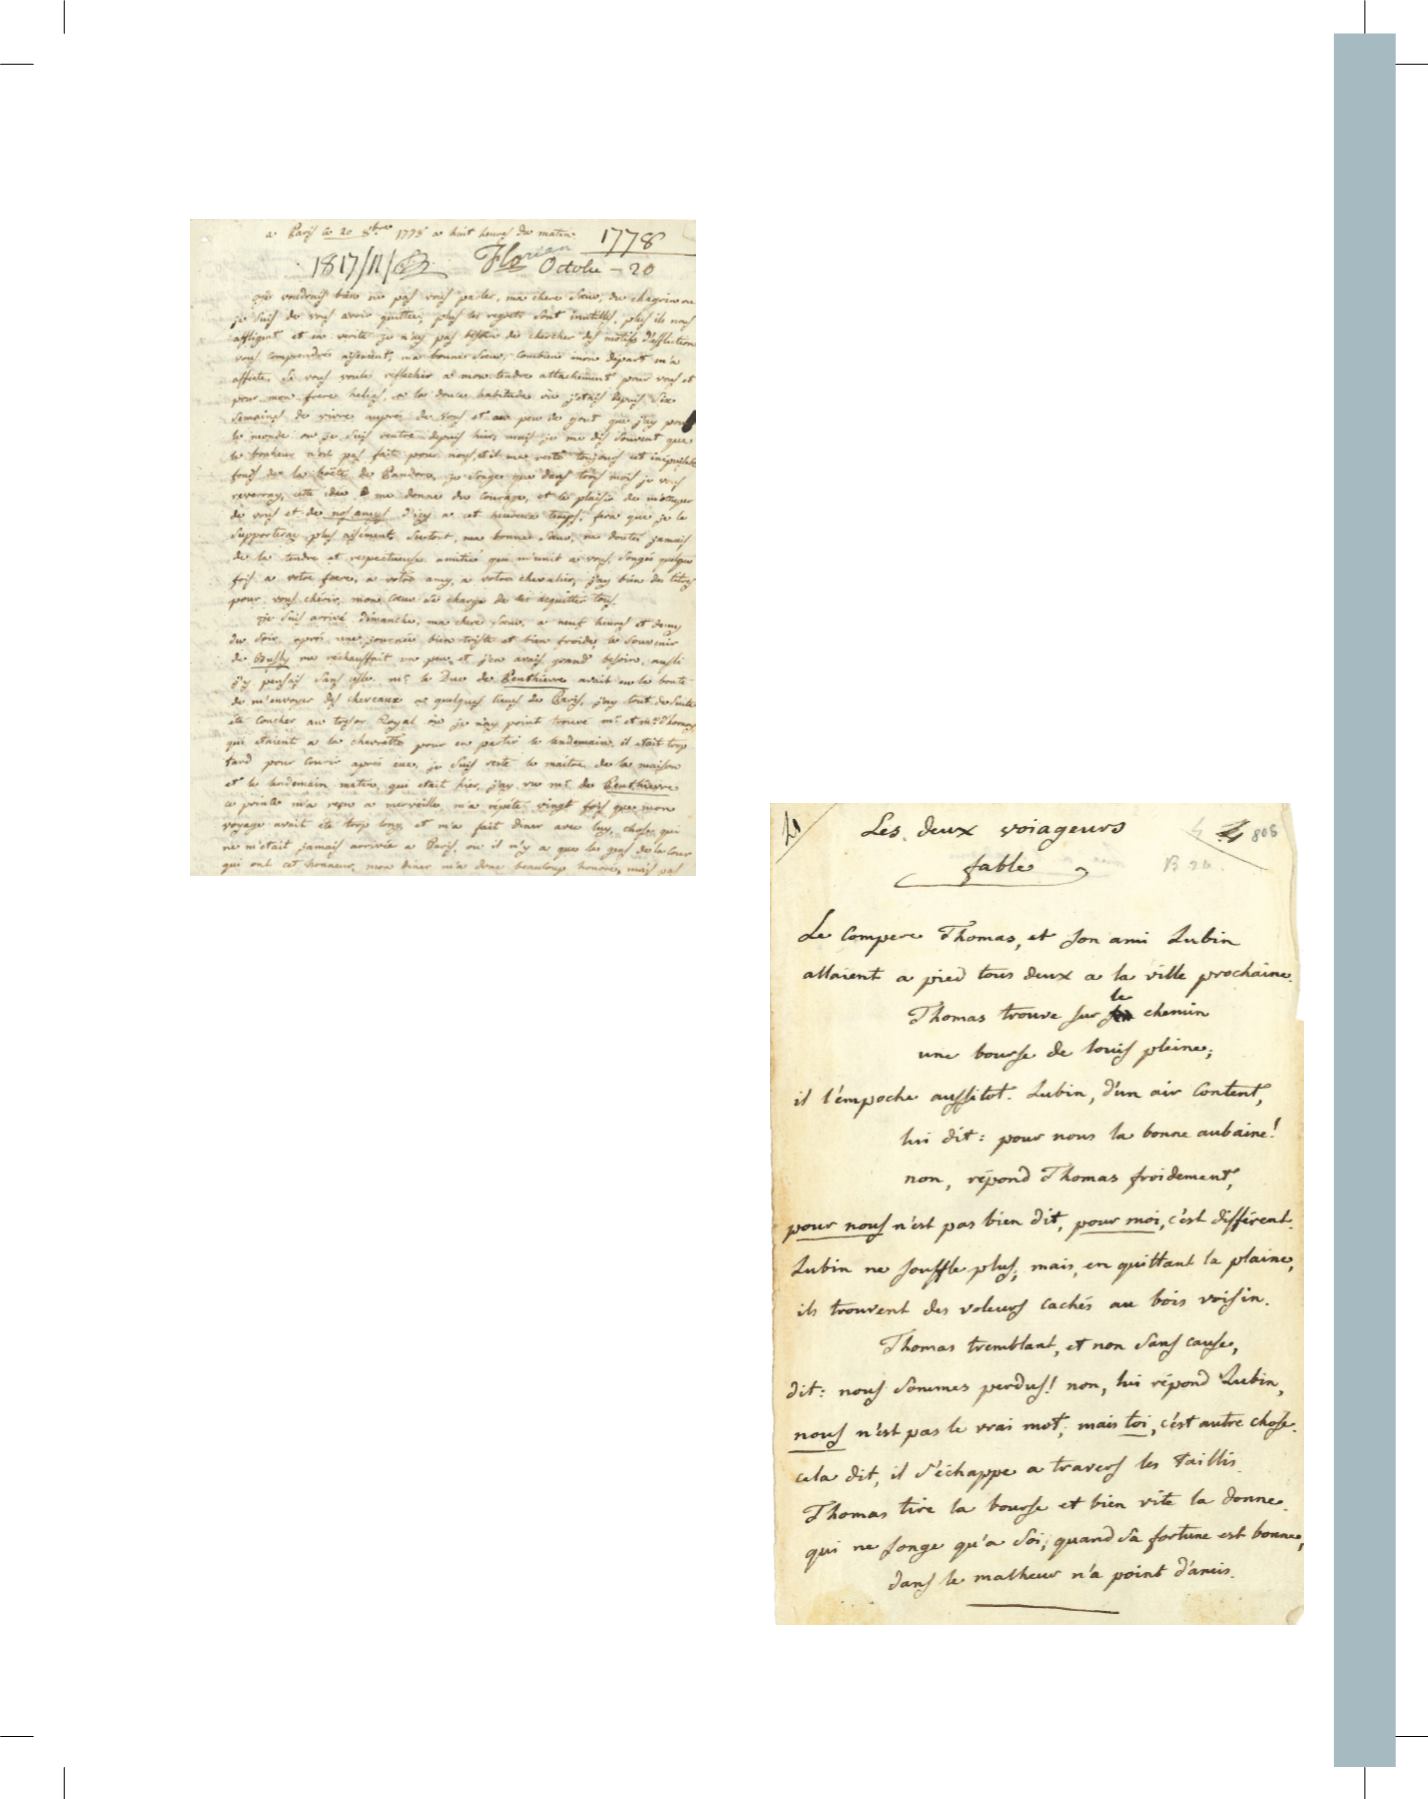 a Paris ce 20 8bre 1778 a huit heures du matin
1778
1817/11/
Florian
Octobre - 20
je voudrais bien ne pas vous parler, ma chere sœur, du chagrin ou
je suis de vous avoir quittée; plus les regrets sont inutilles, plus ils nous
affligent et en verité je n'ay pas besoin de chercher des motifs d'affliction
vous comprendrés aisement, ma bonne sœur, combien mon depart m'a
affecté, si vous voulés reflechir a mon tendre attachement pour vous et
pour mon frere helas, a la douce habitude ou j'etais depuis six
semaines de vivre auprés de vous et au peu de gout que j'ay pour
le monde ou je suis rentré depuis hier, mais je me dis souvent que
le bonheur n'est pas fait pour nous, et il me reste toujours cet inépuisable
fond de la boëte de Pandore, je songe que dans trois mois je vous
reverray, cette idée me donne du courage, et le plaisir de m'occuper
de vous et de nos amys d'icy a cet heureux temps, fera que je le
supporteray plus aisément. surtout, ma bonne sœur, ne doutés jamais
de la tendre et respectueuse amitié qui m'unit a vous, songés quelque
fois a votre frere, a votre amy, a votre chevalier, j'ay bien des titres
pour vous chérir, mon cœur se charge de les acquitter tous.
je suis arrivé dimanche, ma chere sœur, a neuf heures et demy
du soir, aprés une journée bien triste et bien froide, le souvenir
de Bussy me réchauffait un peu, et j'en avais grand besoin, aussi
j'y pensais sans cesse. mr le Duc de Penthievre avait eu la bonté
de m'envoyer des chevaux a quelques lieues de Paris, j'ay tout de suite
été coucher au Royal ou je n'ay point trouvé mr et me d'hornoy
qui etaient a la chevrette pour en partir le lendemain, il etait trop
tard pour courir aprés eux, je suis resté le maitre de la maison
et le lendemain matin, qui etait hier, j'ay vu mr de Penthievre
ce prince m'a reçu a merveille, m'a répété vingt fois que mon
voyage avait été trop long, et m'a fait diner avec luy, chose qui
ne m'etait jamais arrivée a Paris, ou il n'y a que les gens de la Cour
qui ont cet honneur, mon diner m'a donc beaucoup honoré, mais pas
21
Les deux voiageurs
4 805
fable
B 20.
Le Compere Thomas, et son ami Lubin
allaient a pied tous deux a la ville prochaine.
le
Thomas trouve sur chemin
une bourse de louis pleine;
il l'empoche aussitot. Lubin, d'un air content,
lui dit: pour nous la bonne aubaine!
non, répond Thomas froidement,
pour nous n'est pas bien dit, pour moi, c'est différent.
Lubin ne souffle plus; mais, en quittant la plaine,
ils trouvent des voleurs cachés au bois voisin.
Thomas tremblant, et non sans cause,
dit: nous sommes perdus! non, lui répond Lubin,
nous n'est pas le vrai mot; mais toi, c'est autre chose.
cela dit, il s'échappe a travers les taillis.
Thomas tire la bourse et bien vite la donne.
qui ne songe qu'a soi; quand sa fortune est bonne,
dans le malheur n'a point d'amis.